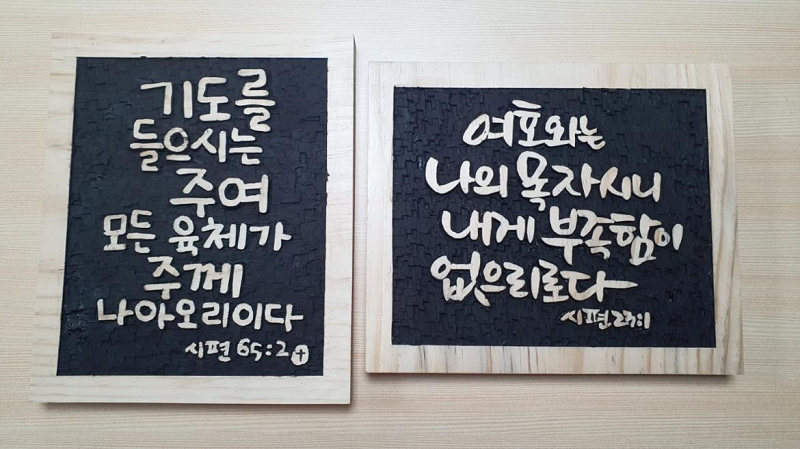 기도를
들으시는
주여
모든 육체가
주께
나아오리이다
시편 65:2
여호와는
나의 목자시니
내게 부족함이
없으리로다
시편 23:1